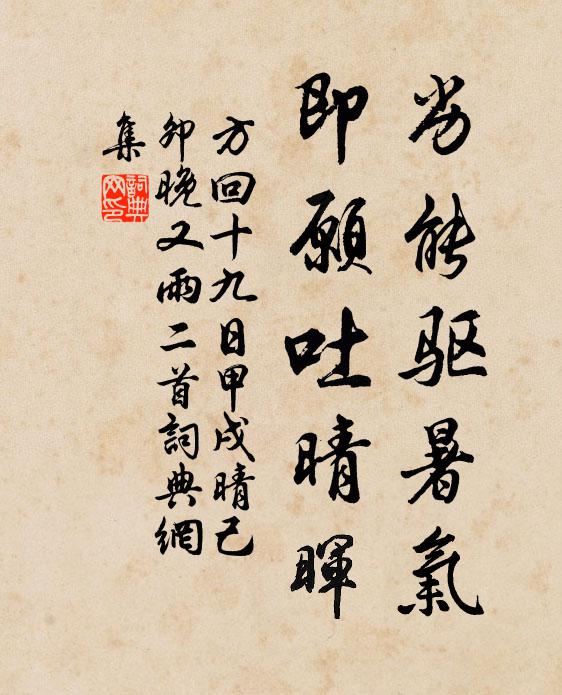 劣能驱暑氣
即願吐晴暉
方回十九日甲戌晴己
卯晚又雨二首詞典網
集
詞典
网印